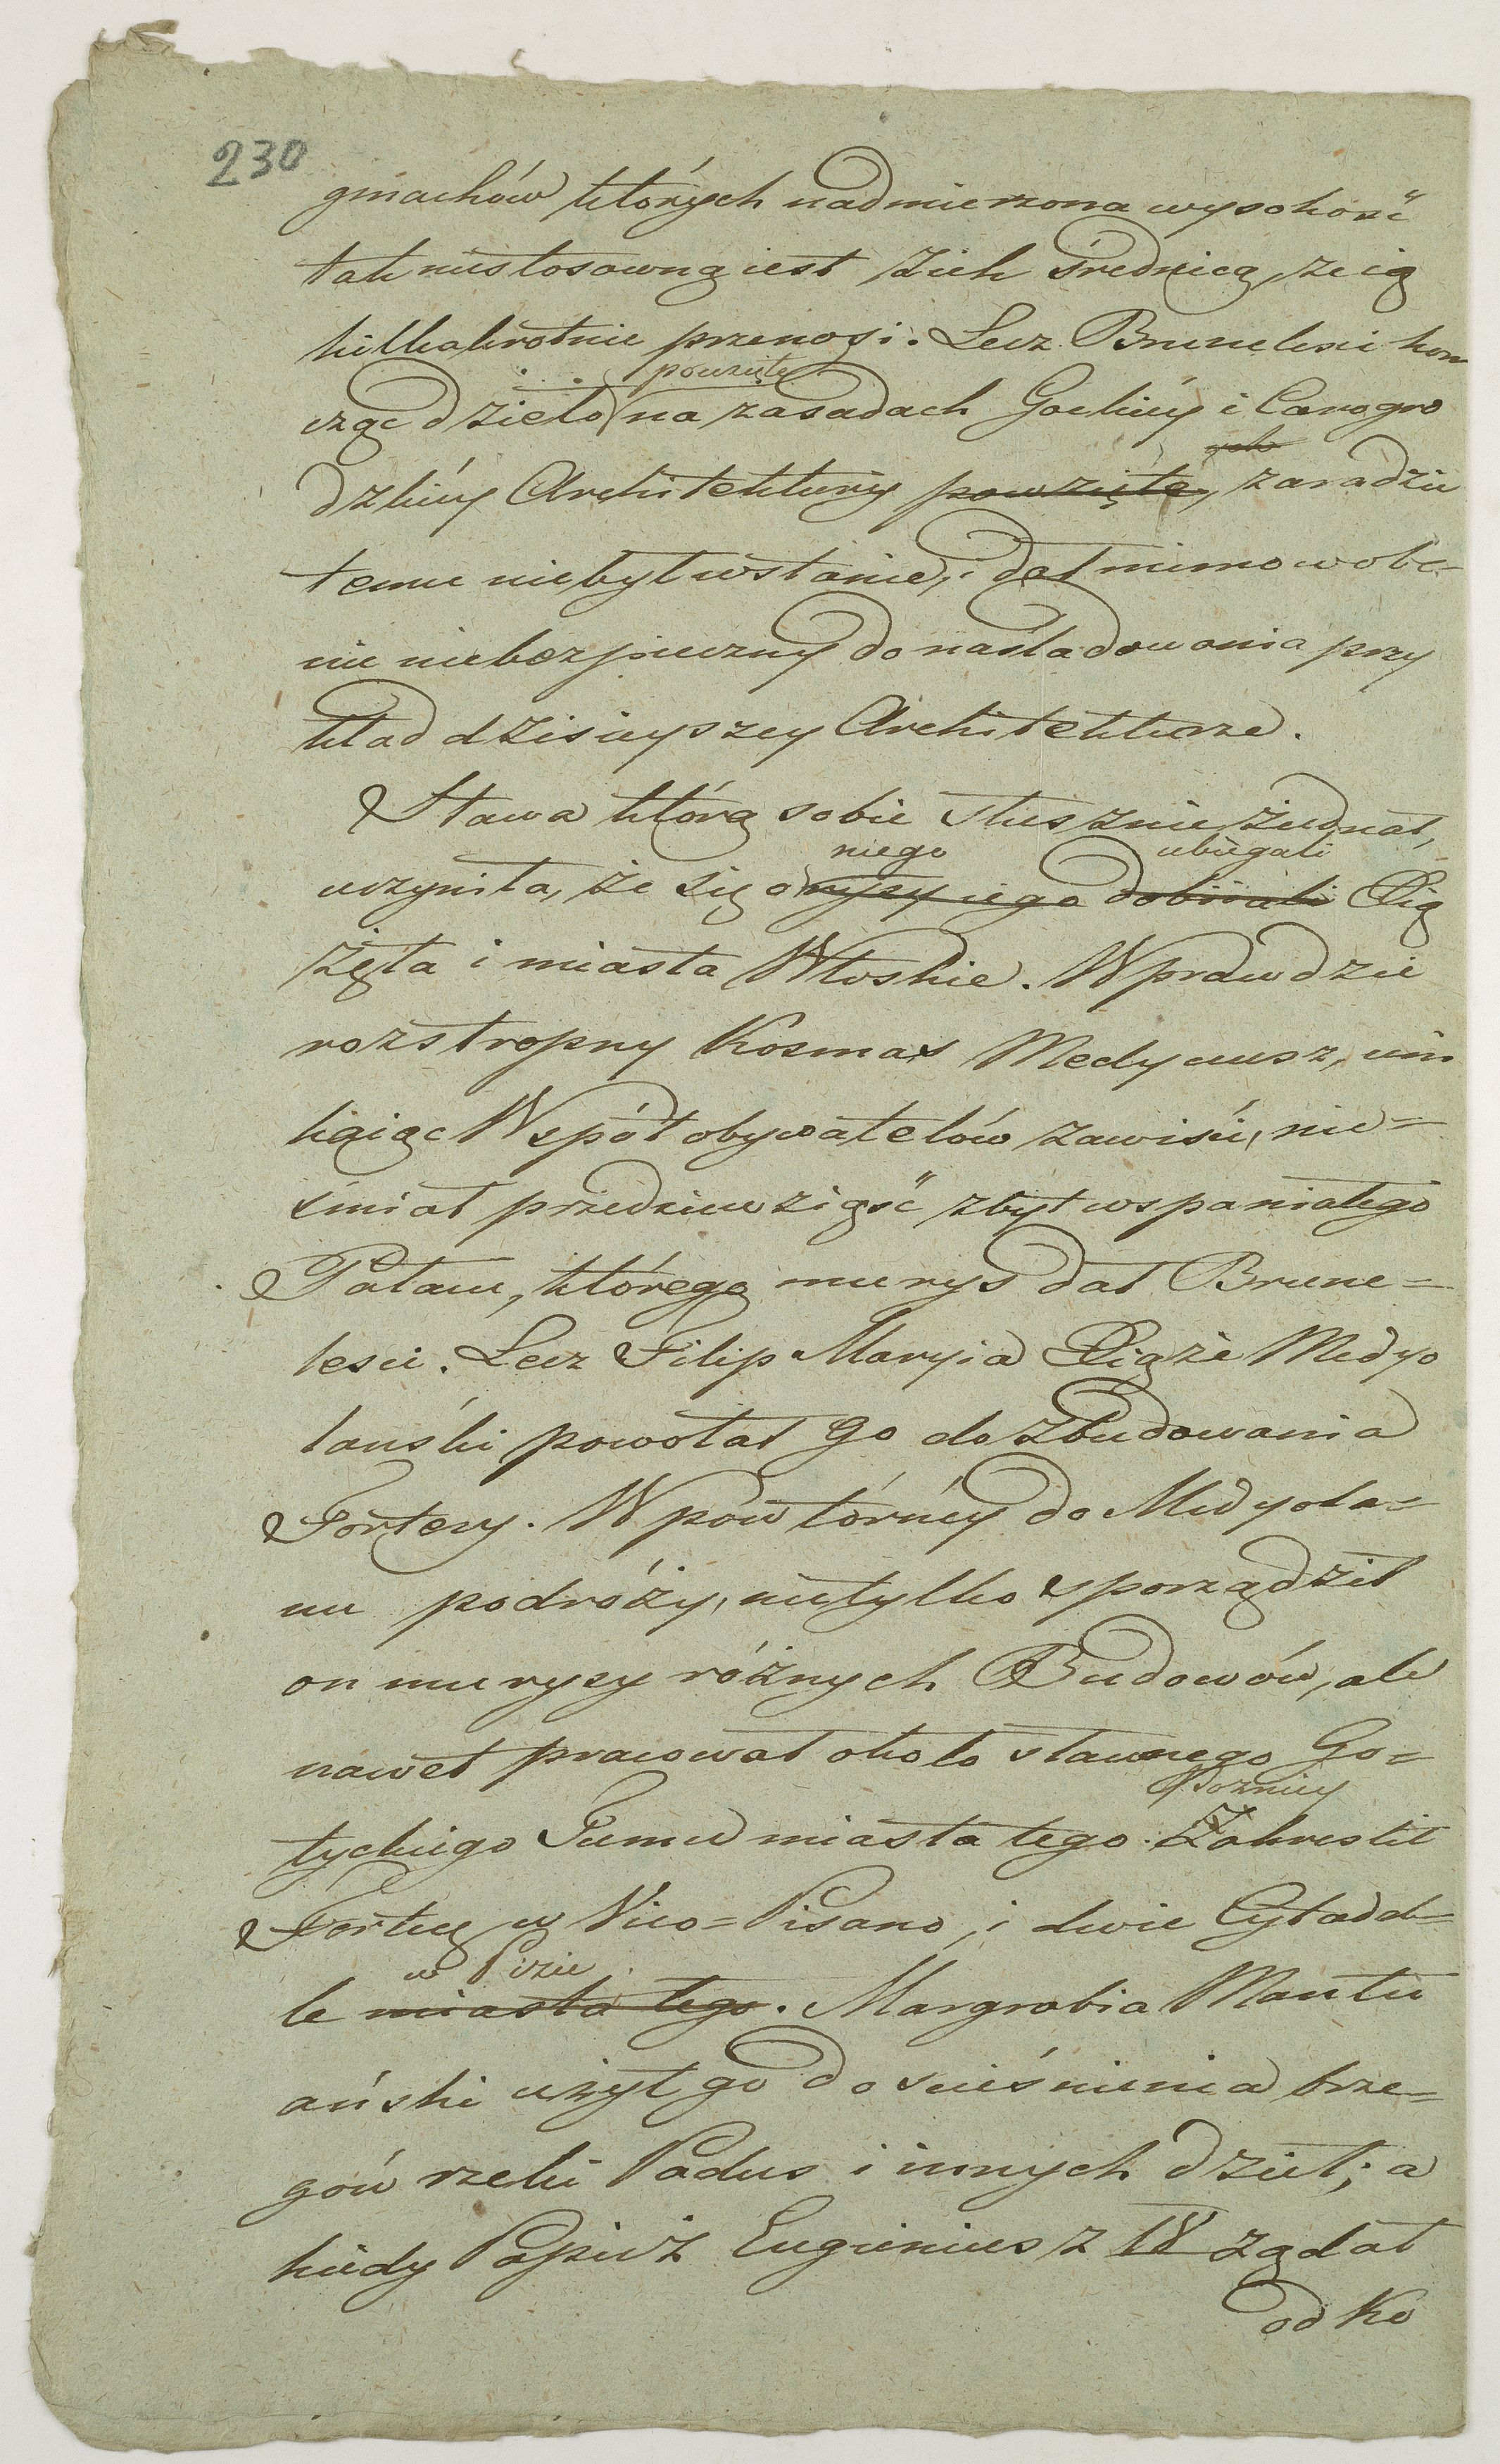 230
gmachów których nadmierzona wysokość
tak niestosowną iest z ich średnicą, że ią
kilkakrotnie przenosi. Lecz Bruneleski kon
powzięte
cząc dzieło na zasadach Gockiéy i Carogro
dzkiéy Architektury powzięte, zaradzić
temu niebył wstanie, i dał mimowole=
nie niebezpieczny do naśladowania przy
kład dzisieyszey Architekturze.
Sława którą sobie słusznie ziednał,
niego ubiegali
uczyniła, że się o rysy iego dobiiali Xią
żęta i miasta Włoskie. Wprawdzie
rozstropny Kosmas Medyceusz, uni
kaiąc Współobywatelów zawiści, nie=
śmiał przedsiewziąść zbyt wspaniałego
Pałacu, którego mu rys dał Brune=
lesci. Lecz Filip Maryia Xiąże Medyo
lański powołał go do zbudowania
Fortecy. W powtórnéy do Medyola=
nu podróży, nietylko sporządził
on mu rysy różnych Budowów, ale
nawet pracował około sławnego Go=
tyckiego Tumu miasta tego. Zakreslił
Fortecę w Vico=Pisano, i dwie Cytadel=
w Pizie
le miasta tego. Margrabia Mantu
ański użył go do scieśnienia brze=
gów rzeki Padus i innych dzieł; a
kiedy Papież Eugieniusz IV żądał
od Ko